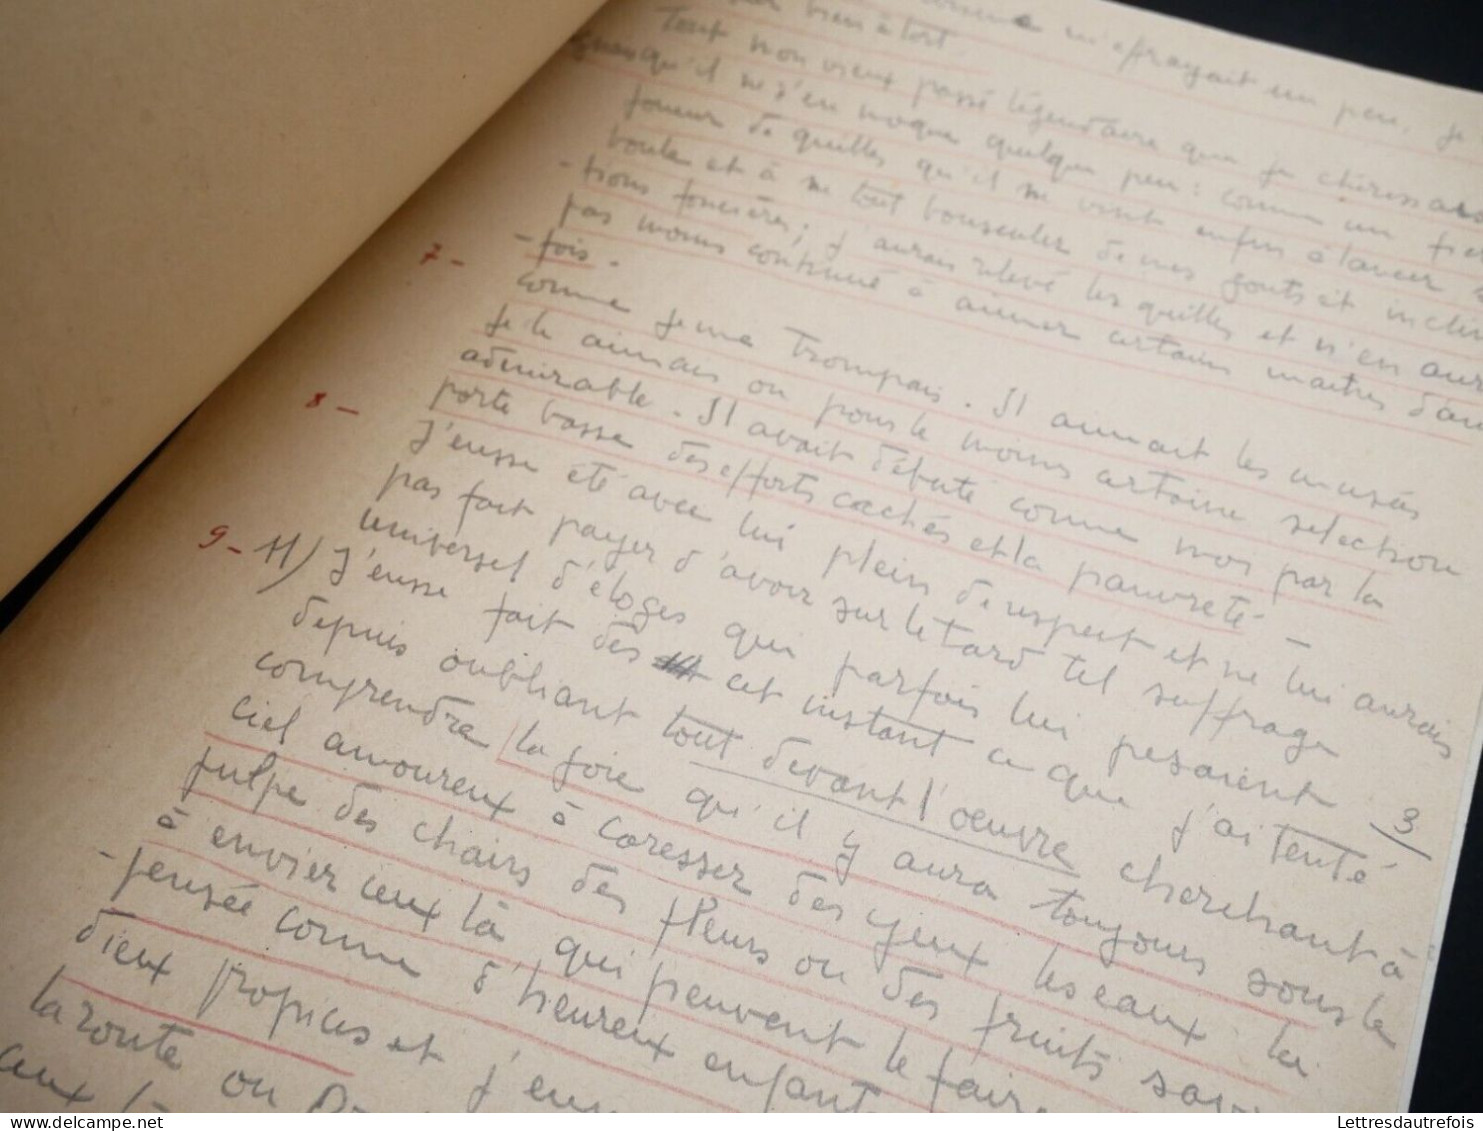 m'effrayait un peu, je
bien à tort.
Tout mon vieux passé légendaire que je chérissais
qu'il ne s'en moque quelque peu : comme un
joueur de quilles qu'il ne vint enfin à lancer sa
boule et à me tout bousculer de mes gouts et inclin
- tions foncières ; j'aurais relevé les quilles et n'en aur
pas moins continué à aimer certains maitres d'au
- fois.
7 - comme je me trompais. Il aimait les musées
Je le aimais ou pour le moins certaine selection
admirable. Il avait débuté comme moi par la
8 - porte basse des efforts cachés et la pauvreté -
J'eusse été avec lui plein de respect et ne lui aurais
pas fait payer d'avoir sur le tard tel suffrage
universel d'éloges qui parfois lui pesaient
9 - H) J'eusse fait dès cet instant ce que j'ai tenté
3
depuis oubliant tout devant l'oeuvre cherchant à
comprendre la joie qu'il y aura toujours sous le
ciel amoureux à caresser des yeux les eaux la
pulpe des chairs des fleurs ou des fruits
à envier ceux là qui peuvent le faire
- pensée comme d'heureux enfant
dieux propices et j'eu
la route ou
aux
LettresdAutrefois